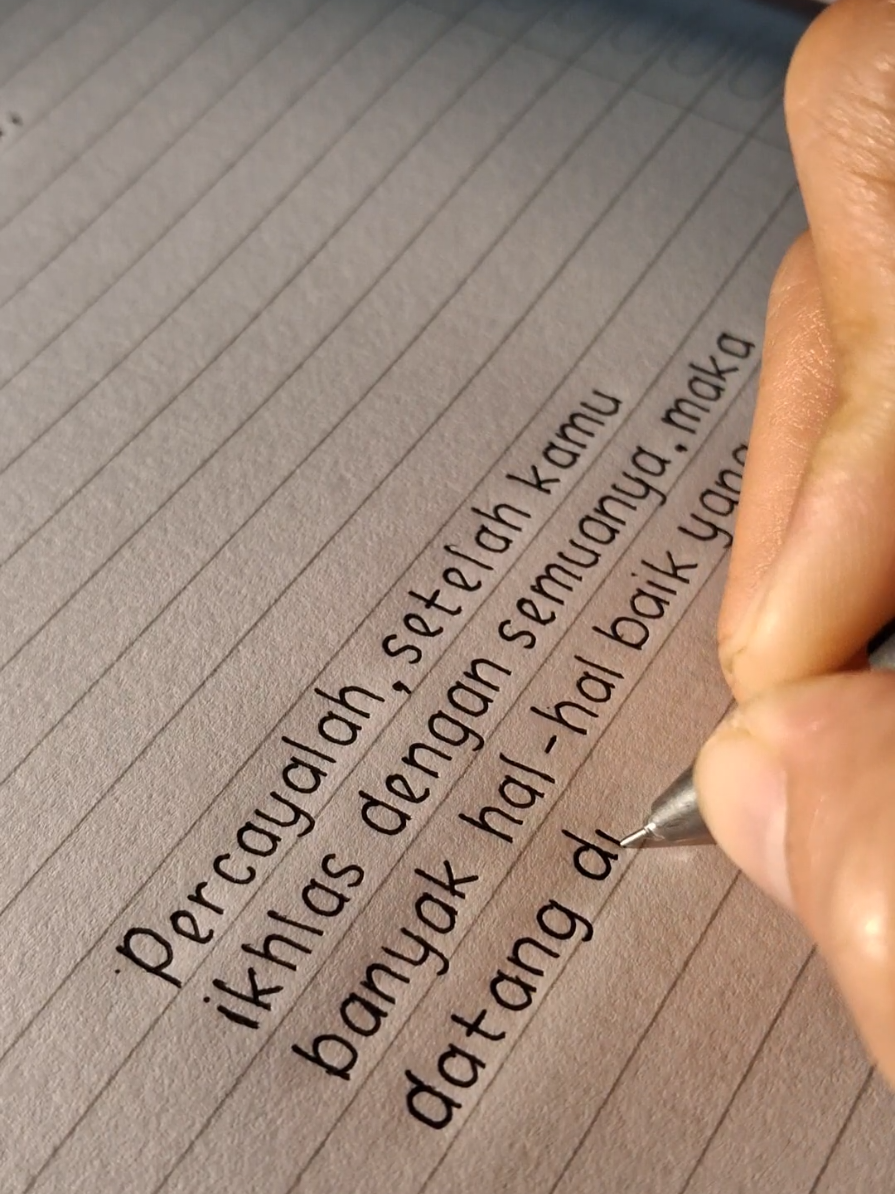 Percayalah, setelah kamu
ikhlas dengan semuanya, maka
banyak hal-hal baik yang
datang di